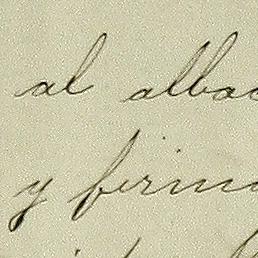 al albac
y firma